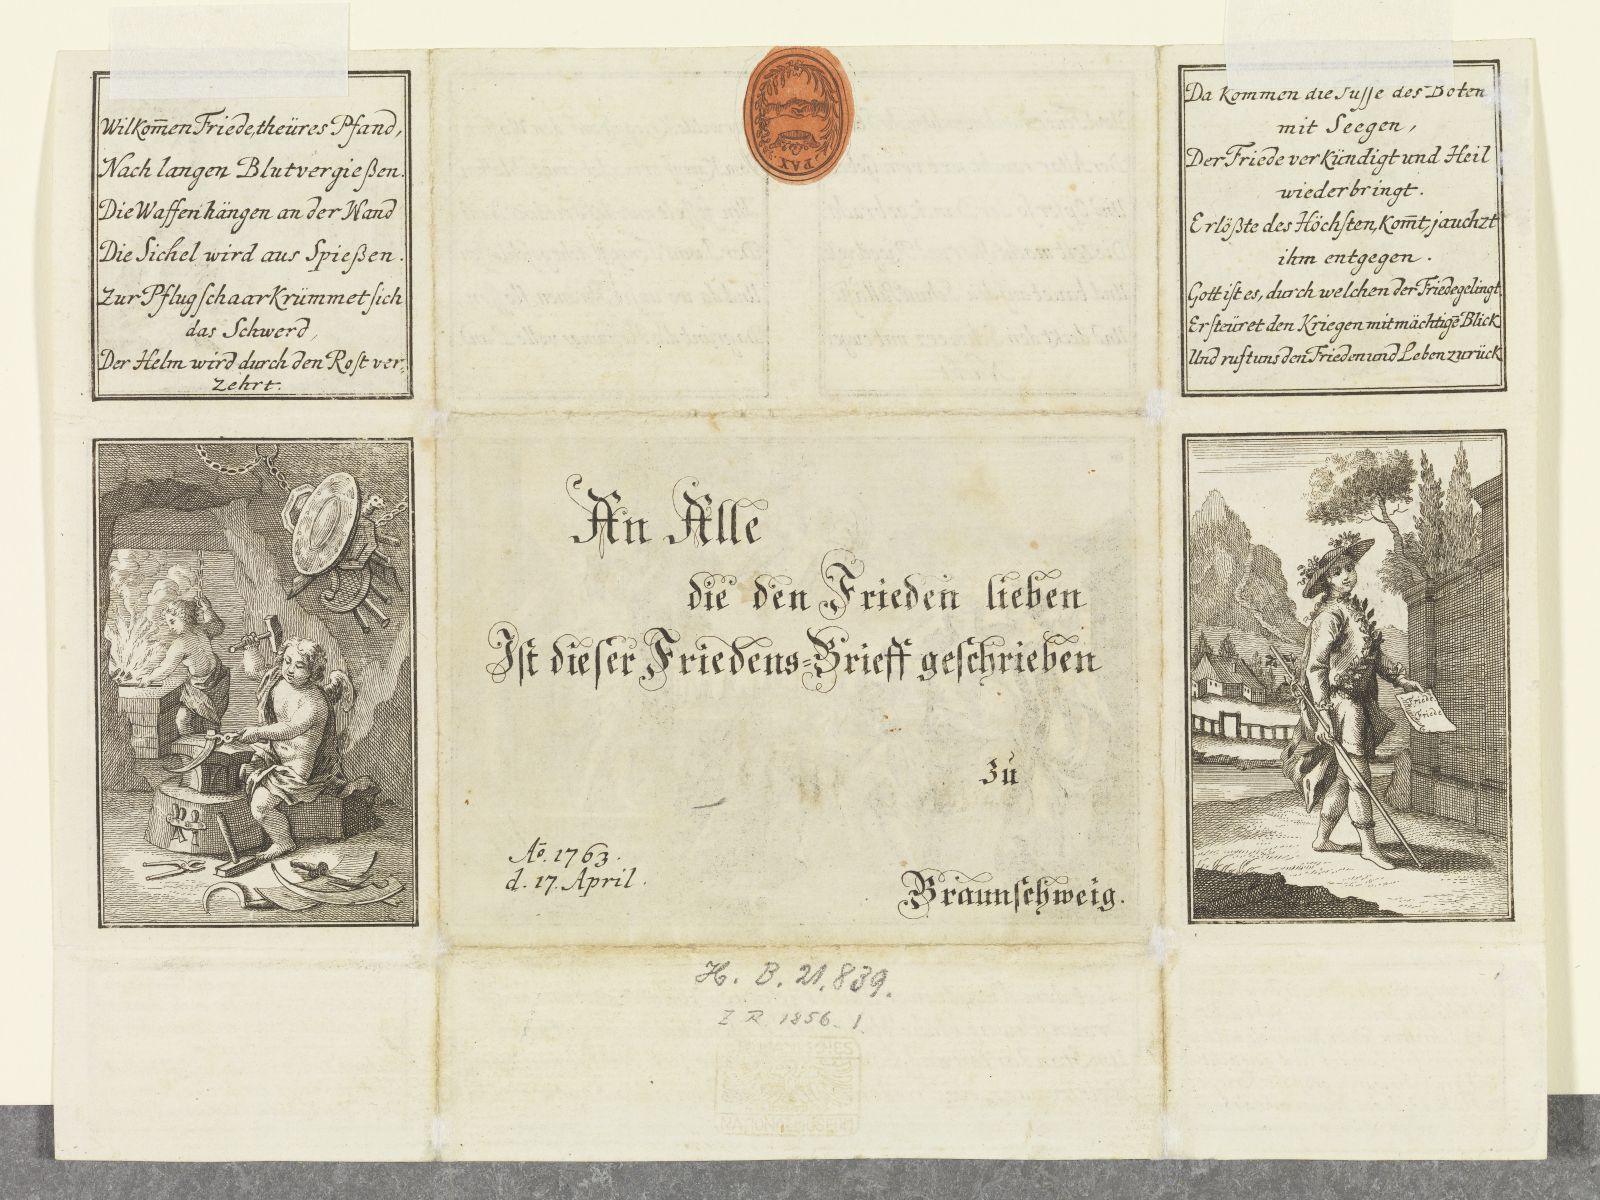 Wilkom̄en Friede, theüres Pfand,
Nach langen Blutvergießen.
Die Waffen hängen an der Wand
Die Sichel wird aus Spießen.
Zur Pflugschaar Krümmet sich
das Schwerd,
Der Helm wird durch den Rost ver-
zehrt.
PAX
Da kommen die Füsse des Boten
mit Seegen,
Der Friede verkündigt und Heil
wiederbringt.
Erlößte des Höchsten, kom̄t, jauchzt
ihm entgegen.
Gott ist es, durch welchen der Friede gelingt.
Er steüret den Kriegen mit mächtigē Blick
Und ruft uns den Frieden und Leben zurück
An Alle
die den Frieden lieben
Ist dieser Friedens=Brieff geschrieben
zu
Braunschweig.
Ao. 1763.
d. 17. April.
Friede
Friede
H. B. 21.839.
Z R 1856. 1.